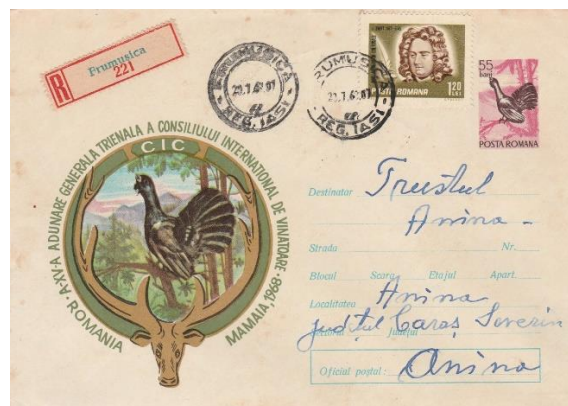 R Frumusica
221
FRUMUSICA
REG. IAȘI
FRUMUSICA
REG. IAȘI
POSTA ROMANA
1,20
55
bani
POSTA ROMANA
A-XV-A ADUNARE GENERALA TRIENALA A CONSILIULUI INTERNATIONAL DE VINATOARE · MAMAIA, 1968 ·
ROMANIA
CIC
Destinatar Trustul
Anina -
Strada Nr.
Blocul Scara Etajul Apart.
Localitatea Anina
județul Caraș Severin
Oficiul poștal: Anina